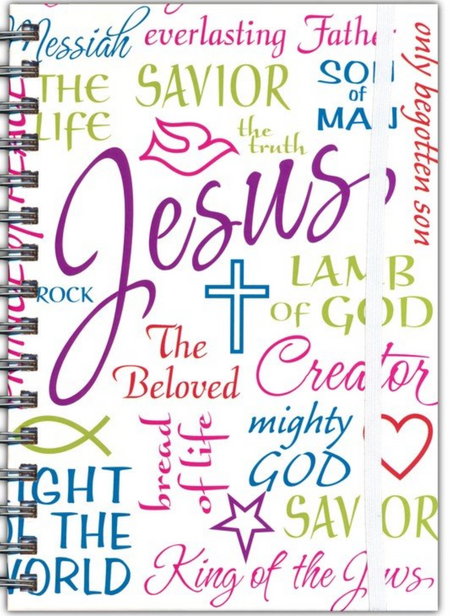 Messiah
everlasting Father
only begotten son
THE
LIFE
SAVIOR
SON
of
MAN
the
truth
Jesus
ROCK
LAMB
of GOD
The
Beloved
Creator
bread
of life
mighty
GOD
IGHT
OF THE
WORLD
SAVIOR
King of the Jews